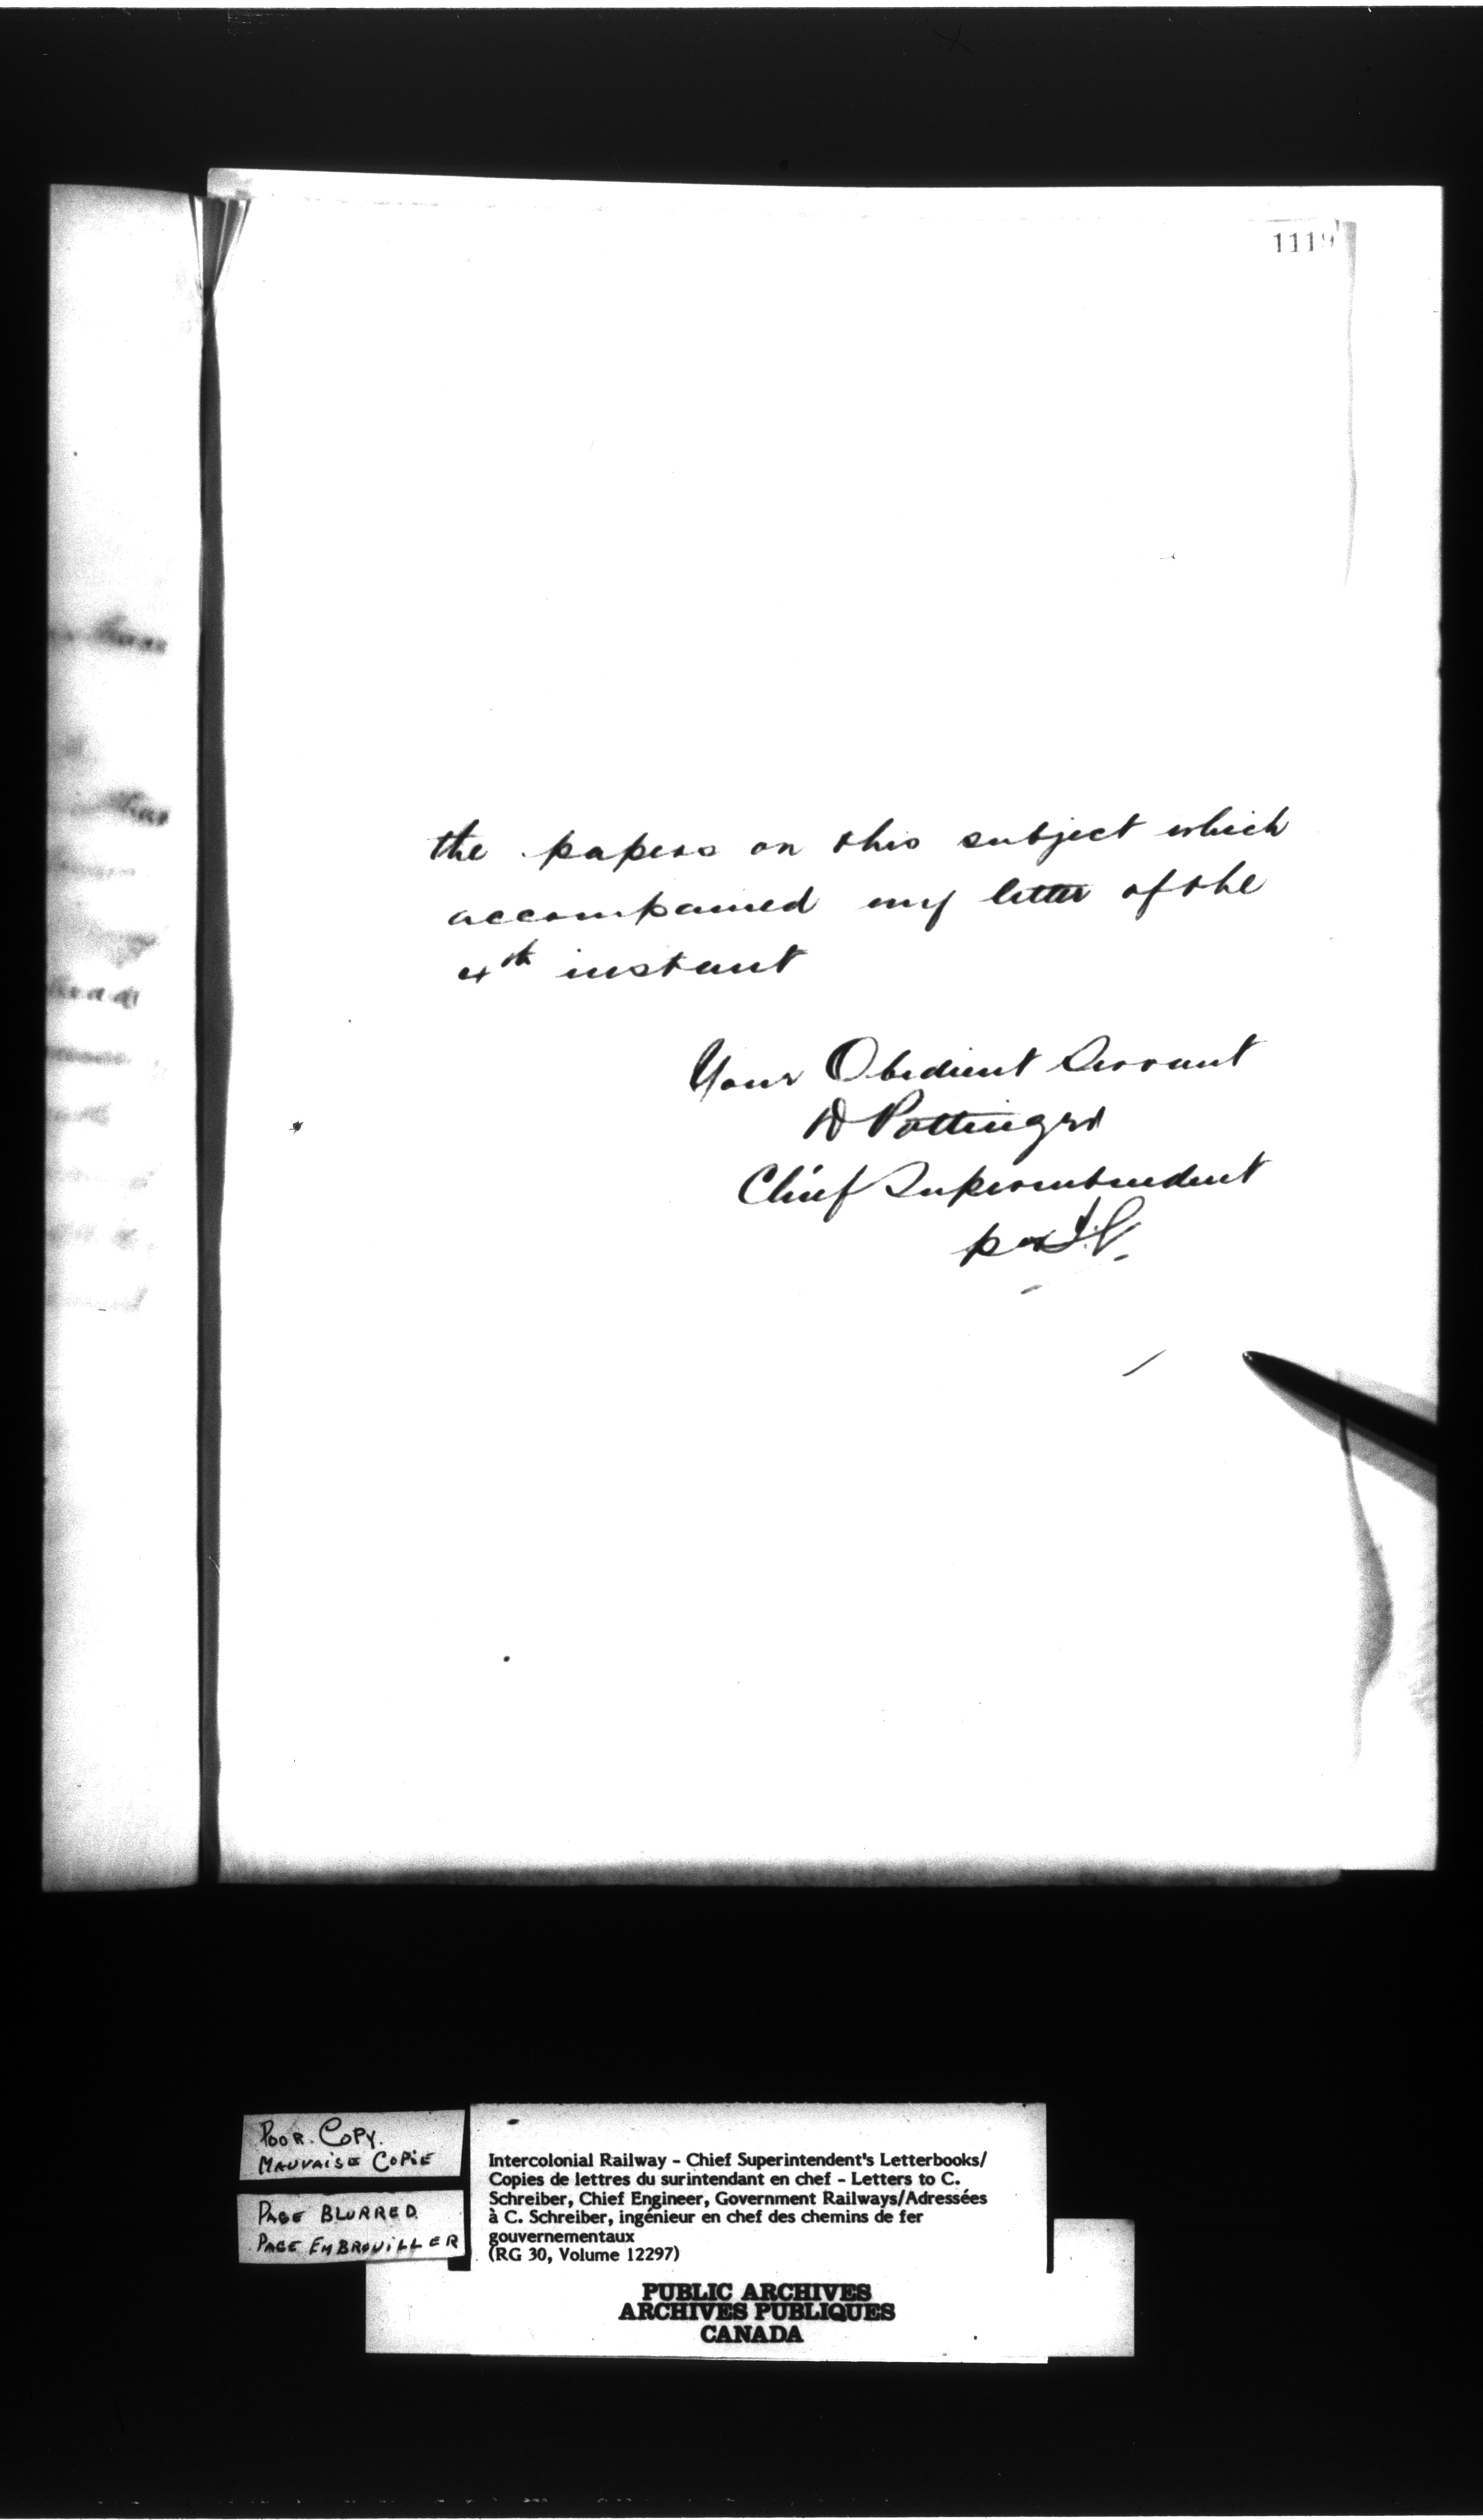 1119
the papers on this subject which
accompanied my letter of the
4th instant
Your Obedient Servant
D Pottinger
Chief Superintendent
per
POOR COPY.
MAUVAISE COPIE
PAGE BLURRED
PAGE EMBROUILLER
Intercolonial Railway - Chief Superintendent's Letterbooks/
Copies de lettres du surintendant en chef - Letters to C.
Schreiber, Chief Engineer, Government Railways/Adressées
à C. Schreiber, ingénieur en chef des chemins de fer
gouvernementaux
(RG 30, Volume 12297)
PUBLIC ARCHIVES
ARCHIVES PUBLIQUES
CANADA